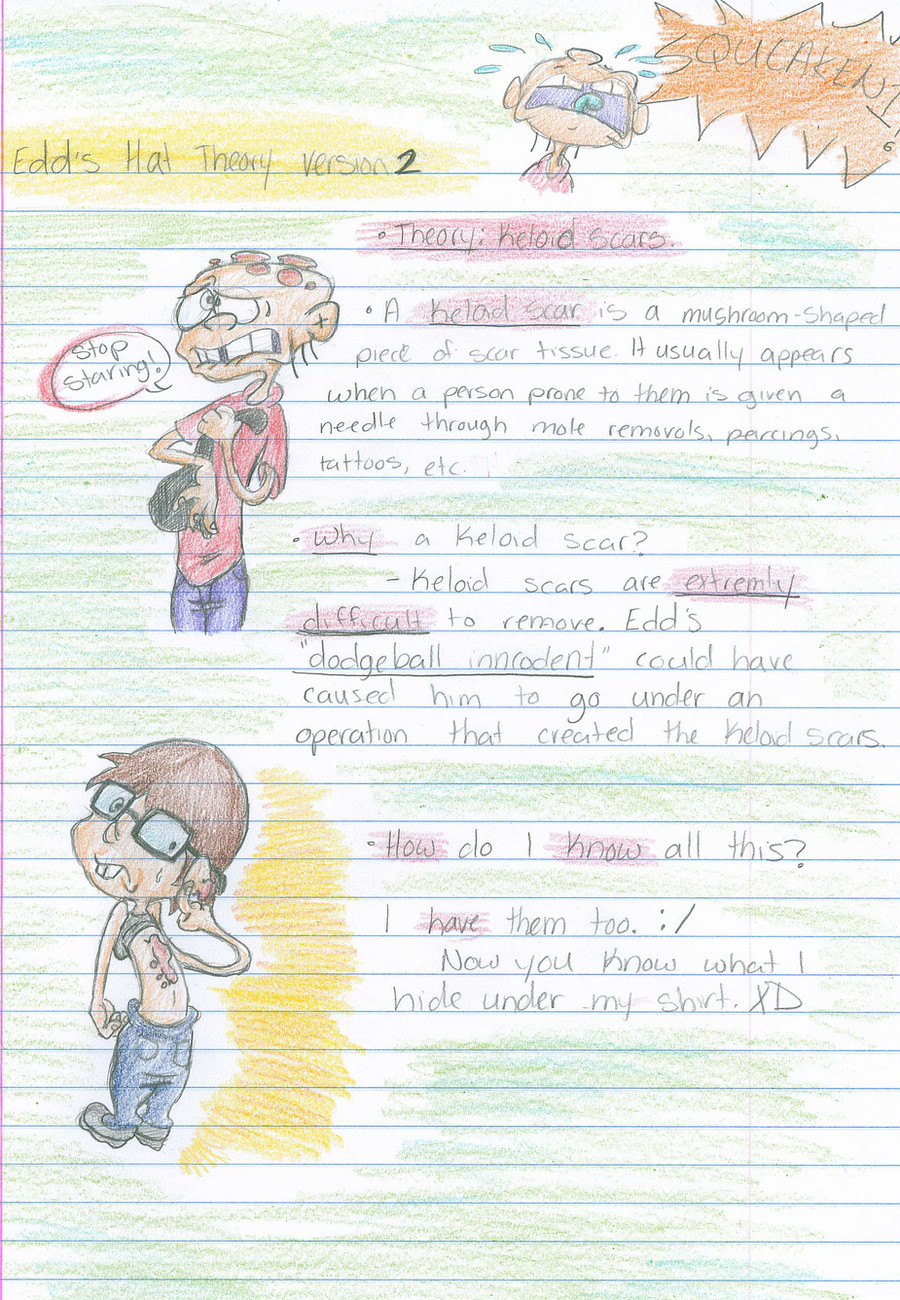 SQUEAKEN!!
6
Edd's Hat Theory version 2
• Theory: Keloid scars.
Stop
staring!
• A keloid scar is a mushroom-shaped
piece of scar tissue. It usually appears
when a person prone to them is given a
needle through mole removals, peircings,
tattoos, etc.
• Why a keloid scar?
- Keloid scars are extremly
difficult to remove. Edd's
"dodgeball innrodent" could have
caused him to go under an
operation that created the keloid scars.
• How do I know all this?
I have them too. :/
Now you know what I
hide under my shirt. XD